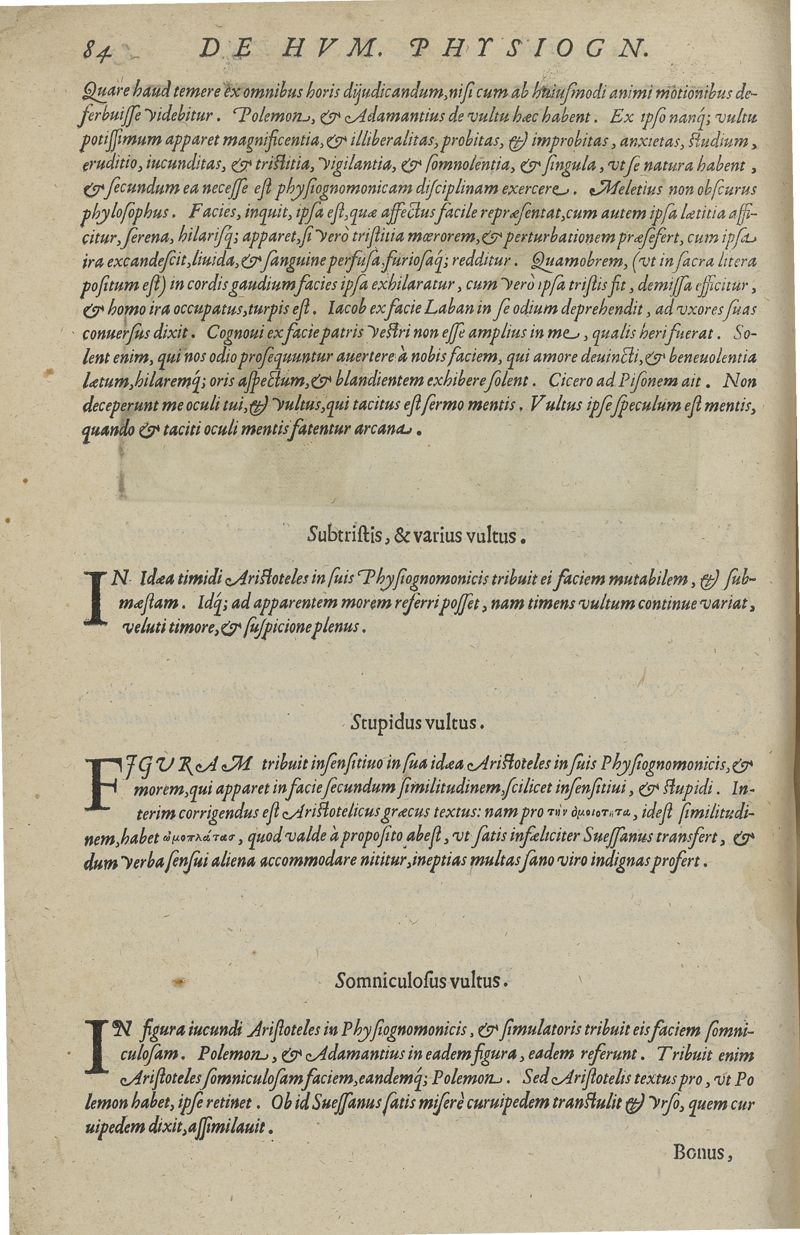 84 DE HVM. PHYSIOGN.
Quare haud temere ex omnibus horis dijudicandum, nisi cum ab huiusmodi animi motionibus de-
ferbuisse videbitur. Polemon, & Adamantius de vultu hæc habent. Ex ipso nanq; vultu
potissimum apparet magnificentia, & illiberalitas, probitas, & improbitas, anxietas, studium,
eruditio, iucunditas, & tristitia, vigilantia, & somnolentia, & singula, vt se natura habent,
& secundum ea necesse est physiognomonicam disciplinam exercere. Meletius non obscurus
phylosophus. Facies, inquit, ipsa est, quæ affectus facile repræsentat, cum autem ipsa lætitia affi-
citur, serena, hilarisq; apparet, si verò tristitia mœrorem, & perturbationem præsefert, cum ipsa
ira excandescit, liuida, & sanguine perfusa, furiosaq; redditur. Quamobrem, (vt in sacra litera
positum est) in cordis gaudium facies ipsa exhilaratur, cum verò ipsa tristis fit, demissa efficitur,
& homo ira occupatus, turpis est. Iacob ex facie Laban in se odium deprehendit, ad vxores suas
conuersus dixit. Cognoui ex facie patris vestri non esse amplius in me, qualis heri fuerat. So-
lent enim, qui nos odio prosequuntur auertere à nobis faciem, qui amore deuincti, & beneuolentia
lætum, hilaremq; oris aspectum, & blandientem exhibere solent. Cicero ad Pisonem ait. Non
deceperunt me oculi tui, & vultus, qui tacitus est sermo mentis. Vultus ipse speculum est mentis,
quando & taciti oculi mentis fatentur arcana.
Subtristis, & varius vultus.
IN Idæa timidi Aristoteles in suis Physiognomonicis tribuit ei faciem mutabilem, & sub-
mæstam. Idq; ad apparentem morem referri posset, nam timens vultum continue variat,
veluti timore, & suspicione plenus.
Stupidus vultus.
FIGURAM tribuit insensitiuo in sua idæa Aristoteles in suis Physiognomonicis, &
morem, qui apparet in facie secundum similitudinem, scilicet insensitiui, & stupidi. In-
terim corrigendus est Aristotelicus græcus textus: nam pro τὴν ὁμοιοτητα, idest similitudi-
nem, habet ὠμοπλάτασ, quod valde à proposito abest, vt satis infæliciter Suessanus transfert, &
dum verba sensui aliena accommodare nititur, ineptias multas sano viro indignas profert.
Somniculosus vultus.
IN figura iucundi Aristoteles in Physiognomonicis, & simulatoris tribuit eis faciem somni-
culosam. Polemon, & Adamantius in eadem figura, eadem referunt. Tribuit enim
Aristoteles somniculosam faciem, eandemq; Polemon. Sed Aristotelis textus pro, vt Po
lemon habet, ipse retinet. Ob id Suessanus satis miserè curuipedem transtulit & vrso, quem cur
uipedem dixit, assimilauit.
Bonus,